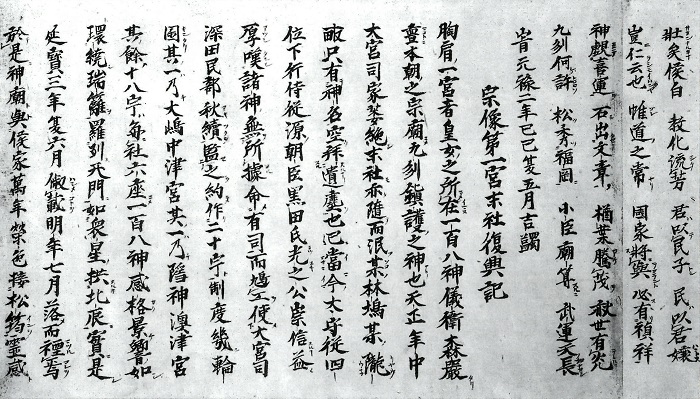 壮矣侯白 敎化流芳 君以民子 民以君孃
豈仁云也 惟道之常 國家將興 必有禎祥
神覡喜運 石出文章 楢葉騰茂 秋世有光
九刕何許 松秀福岡 小臣廟尊 武運天長
旹元祿二年己巳夏五月吉謁
宗像第一宮末社復興記
胸肩一宮者皇女之所在一百八神儀衛森嚴
臺本朝之宗廟九刕鎭護之神也天正年中
大宮司家葬絶末社亦隨而泯某林塢某瀧
畝只有神名空拜道麾也已當今太守從四
位下行侍從源朝臣黒田氏光之公崇信益
厚嘆諸神無所據命有司而鳩工使大宮司
深田民部秋續監之約作二十宇制度幾輪
困其一乃大嶋中津宮其一乃陪神奥津宮
其餘十八宇毎社六座一百八神感格景響如
環繞瑞籬羅列天門如衆星拱北辰實是
延寶三年夏六月俶載明年七月落而禋焉
於是神廟與侯家萬年榮色接松筠靈感